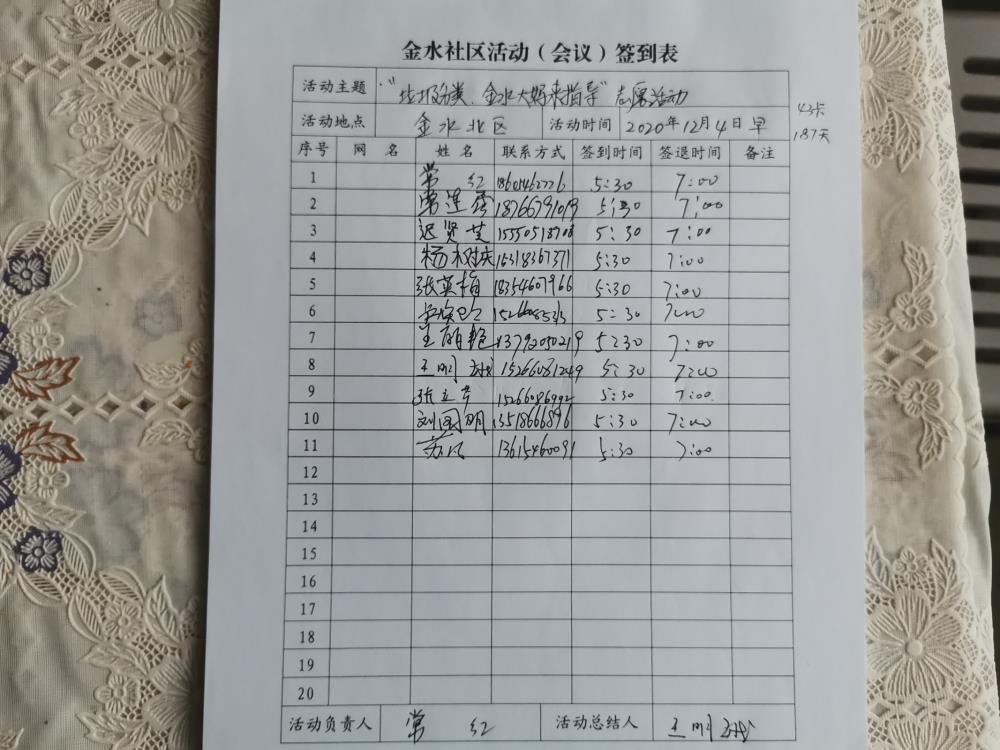 金水社区活动（会议）签到表
活动主题 "垃圾分类、金水大妈来指导"志愿活动
活动地点 金水北区 活动时间 2020年12月4日早
43卡
187天
序号 网 名 姓 名 联系方式 签到时间 签退时间 备注
1 常 红 5:30 7:00
2 常莲香 18766791019 5:30 7:00
3 迟贤芝 5:30 7:00
4 杨树庆 15318367371 5:30 7:00
5 张英梅 18354607966 5:30 7:00
6 5:30 7:00
7 王丽艳 13792050219 5:30 7:00
8 王明 15266081249 5:30 7:00
9 张立 15266086992 5:30 7:00
10 刘国明 13518666896 5:30 7:00
11 苏 13615460091 5:30 7:00
12
13
14
15
16
17
18
19
20
活动负责人 常 红 活动总结人 王明